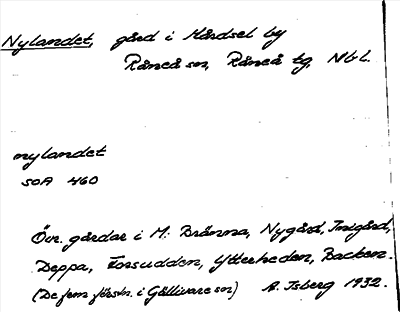 Nylandet, gård i Mårdsel by
Råneå sn, Råneå tg, Nbl.
nylandet
SOA 460
Övr. gårdar i M: Bränna, Nygård, Inigård,
Deppa, Forsudden, Ytterheden, Backen.
(De fem förstn. i Gällivare sn) A. Isberg 1932.